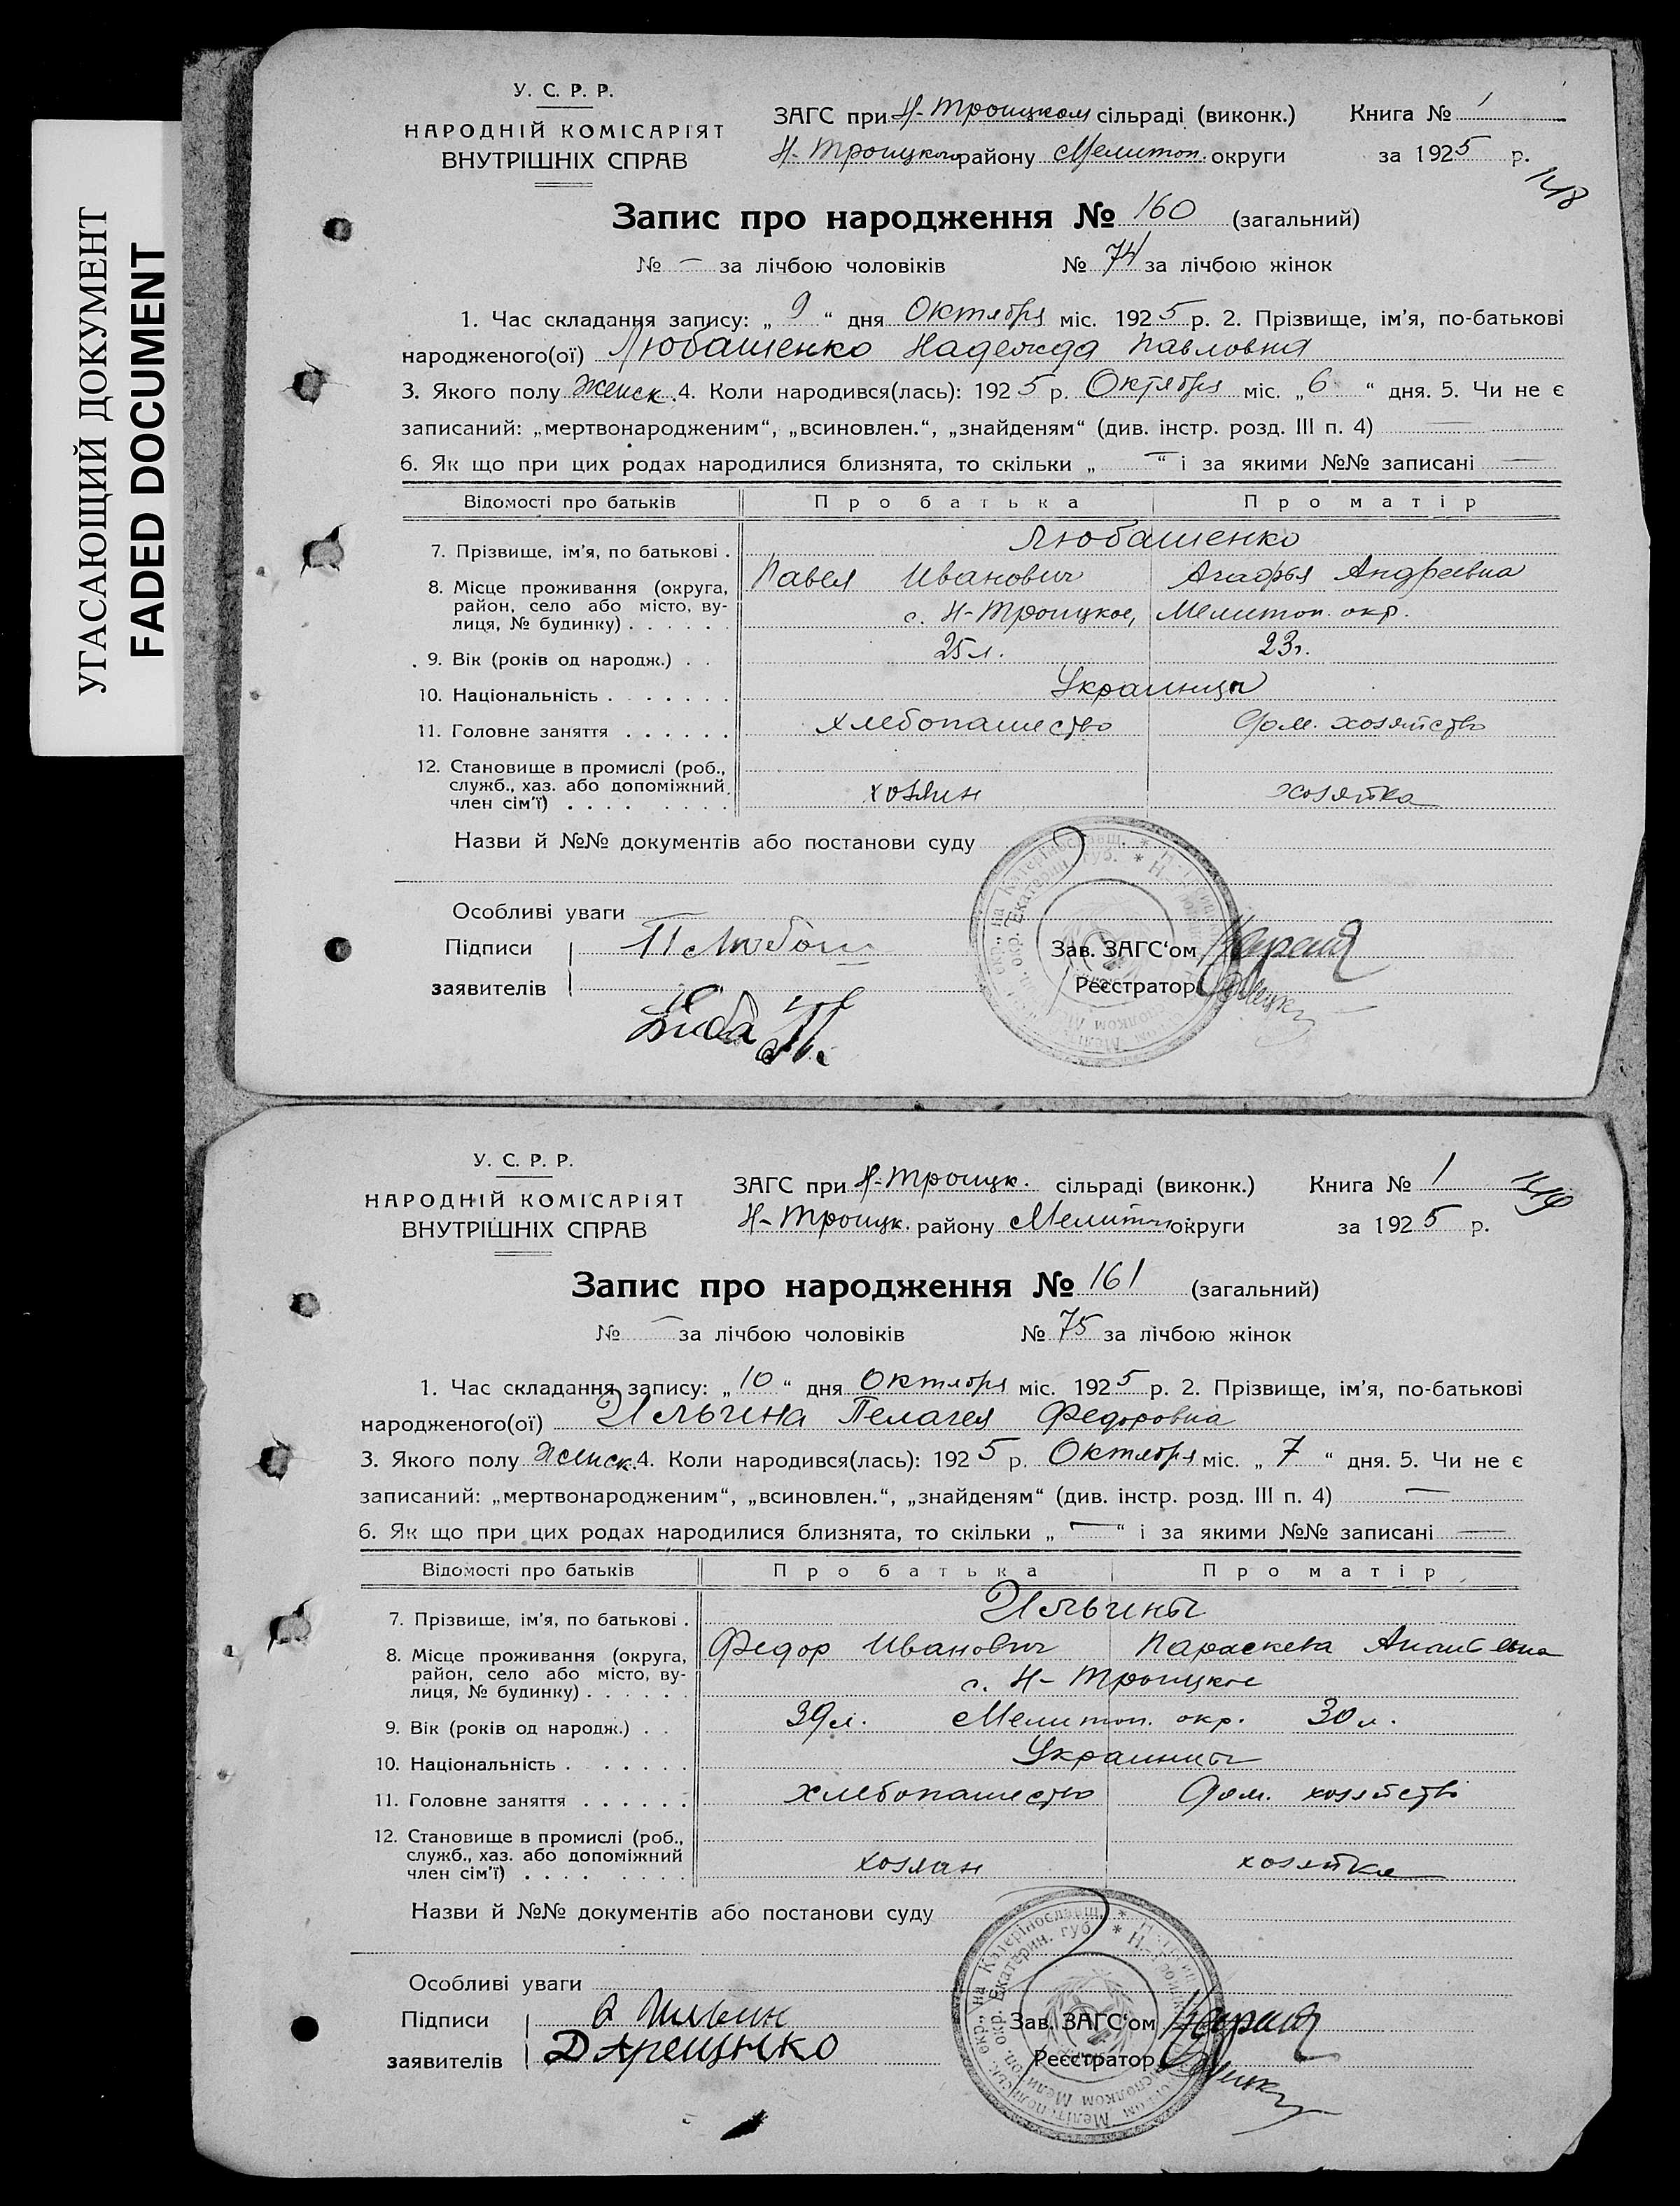 УГАСАЮЩИЙ ДОКУМЕНТ
FADED DOCUMENT
У. С. Р. Р.
НАРОДНІЙ КОМІСАРІЯТ
ВНУТРІШНІХ СПРАВ
ЗАГС при Н-Троицком сільраді (виконк.) Книга № 1
Н-Троицкого району Мелитоп. округи за 1925 р.
148
Запис про народження № 160 (загальний)
№ — за лічбою чоловіків № 74 за лічбою жінок
1. Час складання запису: „9“ дня Октября міс. 1925 р. 2. Прізвище, ім’я, по-батькові
народженого(ої) Любашенко Надежда Павловна
3. Якого полу Женск. 4. Коли народився(лась): 1925 р. Октября міс. „6“ дня. 5. Чи не є
записаний: „мертвонародженим“, „всиновлен.“, „знайденям“ (див. інстр. розд. III п. 4) —
6. Як що при цих родах народилися близнята, то скільки „—“ і за якими №№ записані —
Відомості про батьків Про батька Про матір
7. Прізвище, ім’я, по батькові . Любашенко
8. Місце проживання (округа, Павел Иванович Агафья Андреевна
район, село або місто, ву-
лиця, № будинку) . . . . . . с. Н-Троицкое, Мелитоп. окр.
9. Вік (років од народж.) . . 25 л. 23 г.
10. Національність . . . . . . . Украинцы
11. Головне заняття . . . . . . хлебопашество Дом. хозяйство
12. Становище в промислі (роб.,
служб., хаз. або допоміжний
член сім’ї) . . . . . . . . хозяин хозяйка
Назви й №№ документів або постанови суду
Особливі уваги
Підписи
заявителів
Зав. ЗАГС‘ом
Реєстратор
У. С. Р. Р.
НАРОДНІЙ КОМІСАРІЯТ
ВНУТРІШНІХ СПРАВ
ЗАГС при Н-Троицк. сільраді (виконк.) Книга № 1
Н-Троицк. району Мелитоп округи за 1925 р.
Запис про народження № 161 (загальний)
№ — за лічбою чоловіків № 75 за лічбою жінок
1. Час складання запису: „10“ дня Октября міс. 1925 р. 2. Прізвище, ім’я, по-батькові
народженого(ої) Ильгина Пелагея Федоровна
3. Якого полу Женск. 4. Коли народився(лась): 1925 р. Октября міс. „7“ дня. 5. Чи не є
записаний: „мертвонародженим“, „всиновлен.“, „знайденям“ (див. інстр. розд. III п. 4) —
6. Як що при цих родах народилися близнята, то скільки „—“ і за якими №№ записані —
Відомості про батьків Про батька Про матір
7. Прізвище, ім’я, по батькові .
8. Місце проживання (округа, Федор Иванович Параскева
район, село або місто, ву- с. Н-Троицкое
лиця, № будинку) . . . . . .
9. Вік (років од народж.) . . 39 л. Мелитоп. окр. 30 л.
10. Національність . . . . . . . Украинцы
11. Головне заняття . . . . . . хлебопашество Дом. хозяйство
12. Становище в промислі (роб.,
служб., хаз. або допоміжний
член сім’ї) . . . . . . . . хозяин хозяйка
Назви й №№ документів або постанови суду
Особливі уваги
Підписи
заявителів
Зав. ЗАГС‘ом
Реєстратор